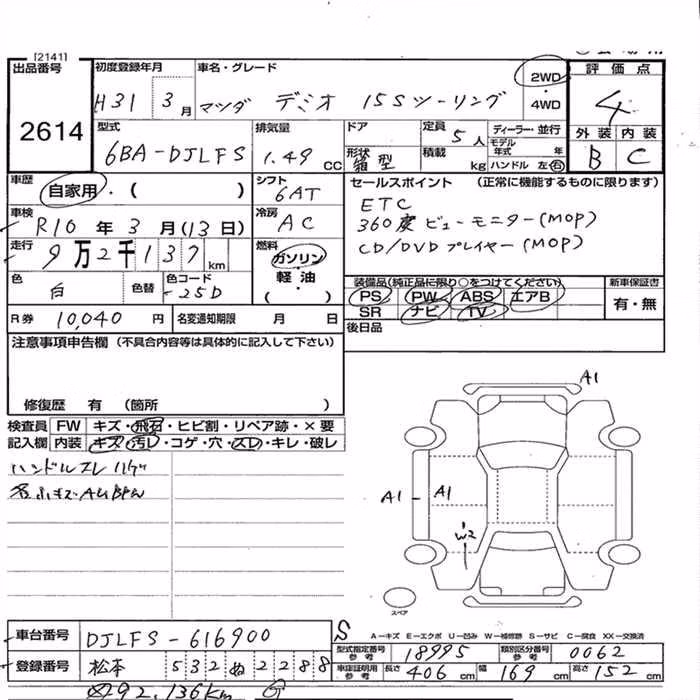 [2141]
出品番号 2614
初度登録年月 H31 3月
車名・グレード マツダ デミオ 15Sツーリング
2WD・4WD
評価点 4
外装 内装
B C
型式 6BA-DJLFS
排気量 1.49 CC
ドア
形状 箱型
定員 5人
積載 kg
ディーラー・並行
モデル年式 年
ハンドル 左・右
車歴 自家用・( )
シフト 6AT
車検 R10年3月(13日)
冷房 AC
走行 9万2千137km
燃料 ガソリン・軽油 ( )
色 白
色替
色コード 25D
R券 10,040円
名変通知期限 月 日
セールスポイント (正常に機能するものに限ります)
ETC
360度ビューモニター(MOP)
CD/DVDプレイヤー(MOP)
装備品(純正品に限り○をつけてください)
PS PW ABS エアB
SR ナビ TV
新車保証書
有・無
後日品
注意事項申告欄 (不具合内容等は具体的に記入して下さい)
修復歴 有 (箇所 )
検査員記入欄
FW キズ・飛石・ヒビ割・リペア跡・×要
内装 キズ・汚レ・コゲ・穴・スレ・キレ・破レ
ハンドルスレ ハゲ
A1
A1
A1
W2
スペア
S
A-キズ E-エクボ U-凹み W-補修跡 S-サビ C-腐食 XX-交換済
車台番号 DJLFS-616900
登録番号 松本 532 ぬ 2288
型式指定番号 参考 18995
類別区分番号 参考 0062
車庫証明用 参考 長さ 406cm 幅 169cm 高さ 152cm
92,136km